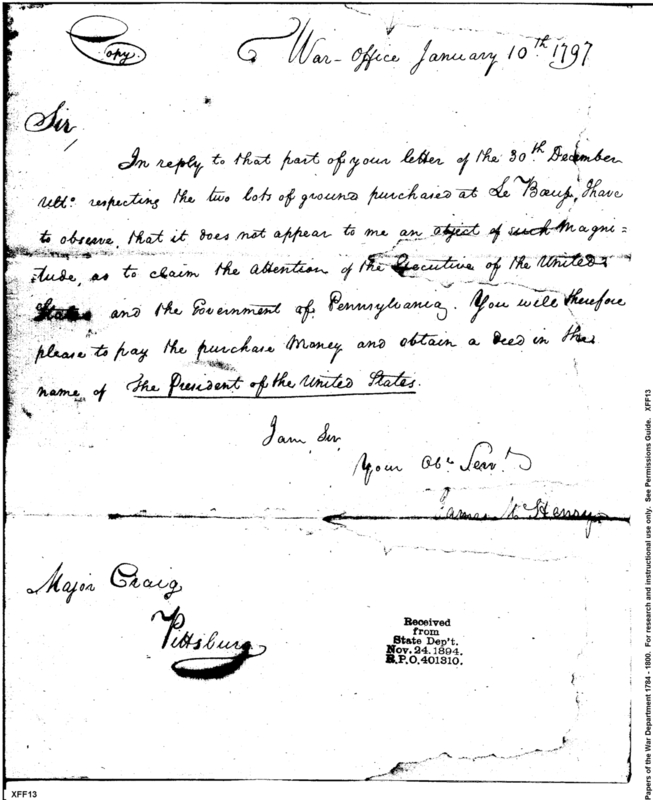 Copy.
War-Office January 10th 1797
Sir,
In reply to that part of your letter of the 30th December
ulto. respecting the two lots of ground purchased at Le Bœuf, I have
to observe, that it does not appear to me an object of such Magni=
tude, as to claim the attention of the Executive of the United
States and the Government of Pennsylvania. You will therefore
please to pay the purchase Money and obtain a deed in the
name of the President of the United States.
I am, Sir,
Your Obt. Servt.
James McHenry
Major Craig
Pittsburg
Received
from
State Dep't.
Nov. 24. 1894.
R.P.O. 401310.
XFF13
Papers of the War Department 1784 - 1800. For research and instructional use only. See Permissions Guide. XFF13